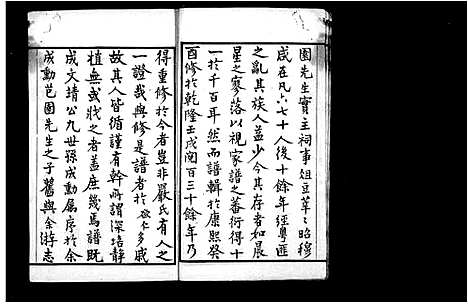 園先生實主祠事俎豆莘莘昭穆
咸在凡六七十人後十餘年經粵匪
之亂其族人益少今其存者如晨
星之寥落以視家譜之蕃衍得十
一於千百年然而譜輯於康熙癸
酉修於乾隆壬戌閱百三十餘年乃
得重修於今者豈非嚴氏有人之
一證哉與修是譜者於 多戚
故其人皆循謹有幹所謂深培靜
植無或戕之者蓋庶幾焉譜既
成文靖公九世孫成勳屬序於余
成勳芑園先生之子舊與余游志